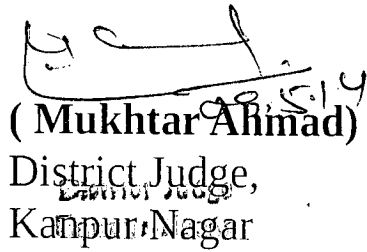 ( Mukhtar Ahmad)
District Judge,
Kanpur Nagar